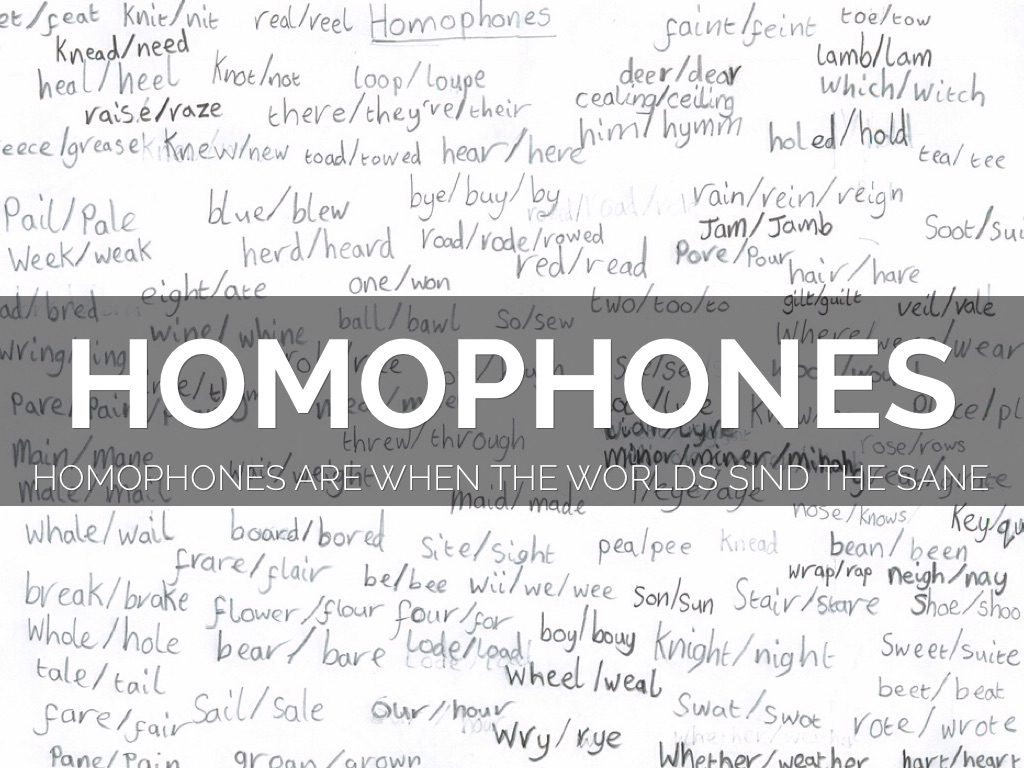 et/feat Knit/nit real/reel Homophones faint/feint toe/tow
Knead/need lamb/lam
heal/heel Knot/not loop/loupe deer/dear which/witch
raise/raze there/they're/their cealing/ceiling
him/hymm holed/hold
eece/grease Knew/new toad/towed hear/here tea/tee
Pail/Pale blue/blew bye/buy/by rain/rein/reign
Week/weak herd/heard road/rode/rowed Jam/Jamb Soot/Sui
red/read Pore/Pour hair/hare
ad/bred eight/ate one/won two/too/to gilt/guilt veil/vale
wine/whine ball/bawl So/sew
HOMOPHONES
threw/through rose/rows
Main/mane minor/miner/
HOMOPHONES ARE WHEN THE WORLDS SIND THE SANE
Male/mail maid/made
whale/wail board/bored Site/Sight pea/pee Knead nose/knows Key/qu
bean/been
frare/flair be/bee wii/we/wee wrap/rap neigh/nay
break/brake flower/flour four/for Son/Sun Stair/Stare Shoe/shoo
Whole/hole bear/bare lode/load boy/bouy Knight/night Sweet/Suite
tale/tail wheel/weal beet/beat
fare/fair Sail/Sale Our/hour Swat/Swot rote/wrote
Wry/rye
Pane/Pain groan/grown Whether/weather hart/heart